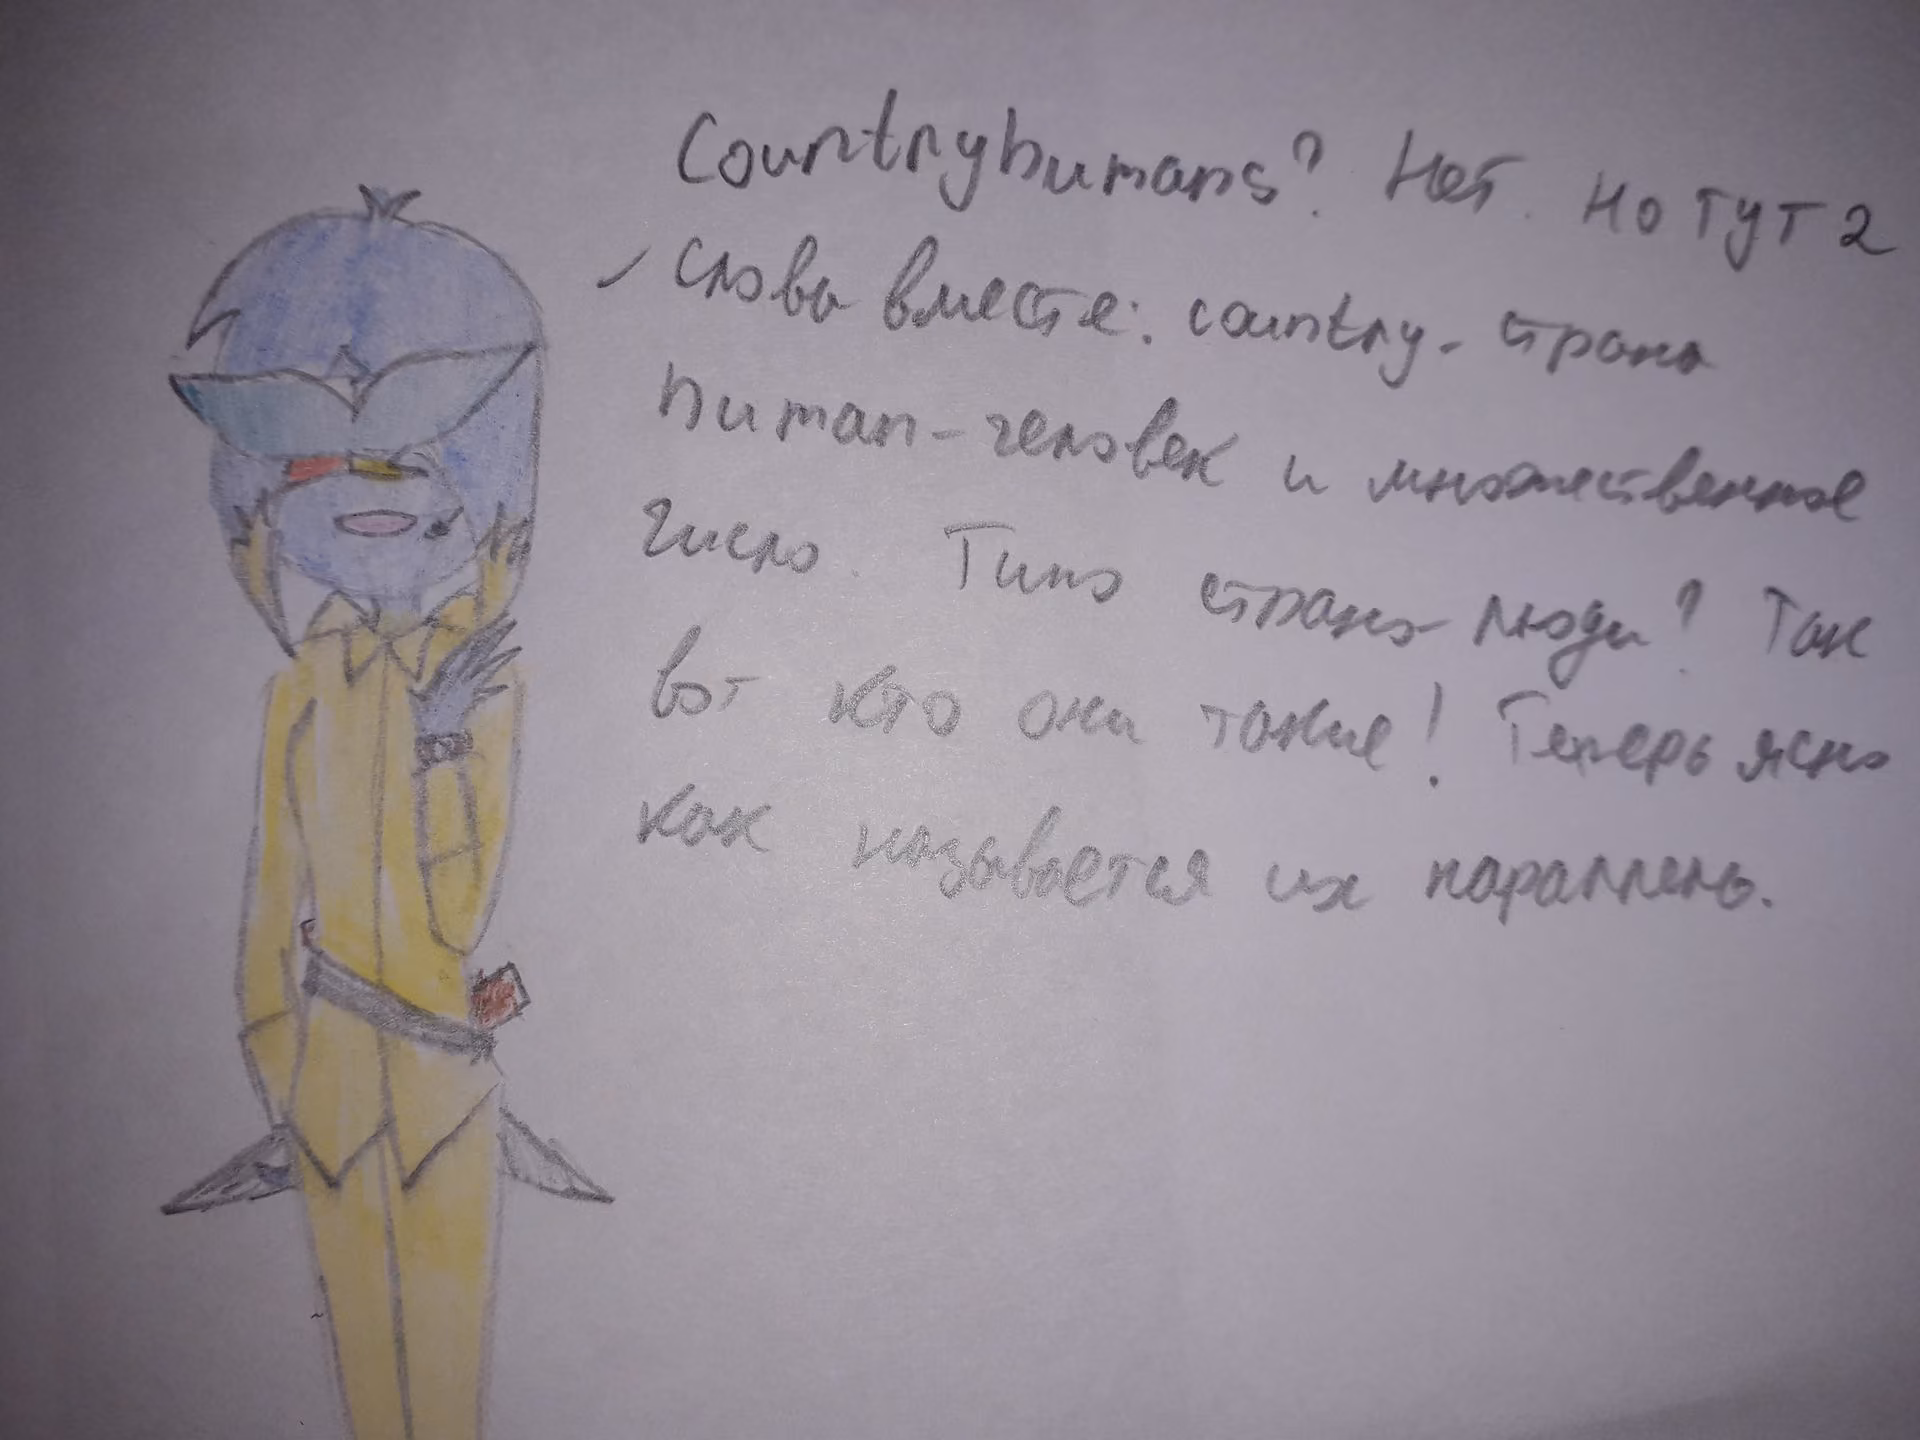 Countryhumans? Нет. Но тут 2
слова вместе: country - страна
human - человек и множественное
число. Типо страна люди? Так
вот кто они такие! Теперь ясно
как называется их параллель.